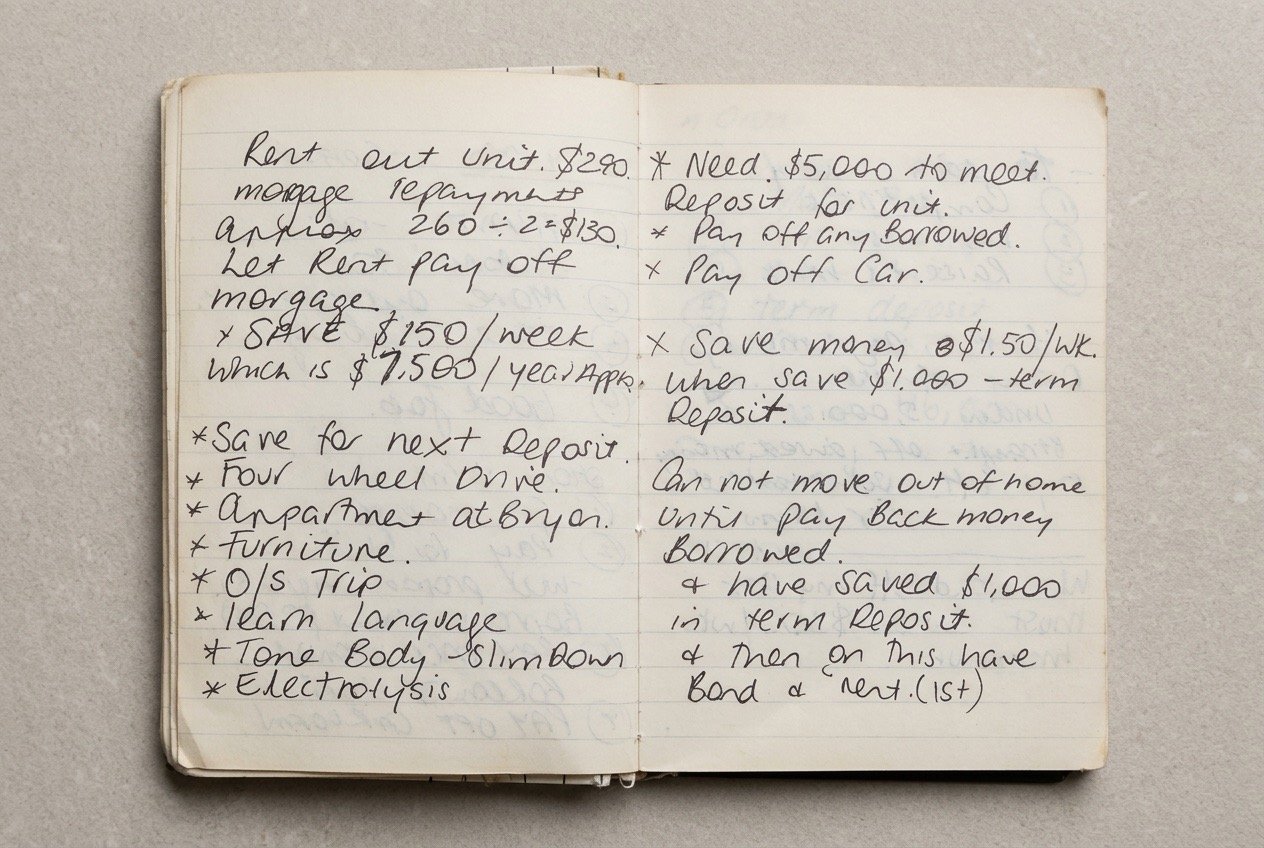 Rent out unit. $290.
morgage repayments
approx 260 ÷ 2 = $130.
Let Rent pay off
morgage
* SAVE $150/week
Which is $7,500/year Appx.
* Save for next Deposit.
* Four wheel Drive.
* Appartment at Byron.
* Furniture.
* O/S Trip
* learn language
* Tone Body - Slim Down
* Electrolysis
* Need. $5,000 to meet.
Deposit for unit.
* Pay off any Borrowed.
* Pay off Car.
* Save money $1.50/WK.
when save $1.000 - term
Deposit.
Can not move out of home
until pay Back money
Borrowed.
& have saved $1,000
in term Deposit.
& then on this have
Bond & rent. (1st)